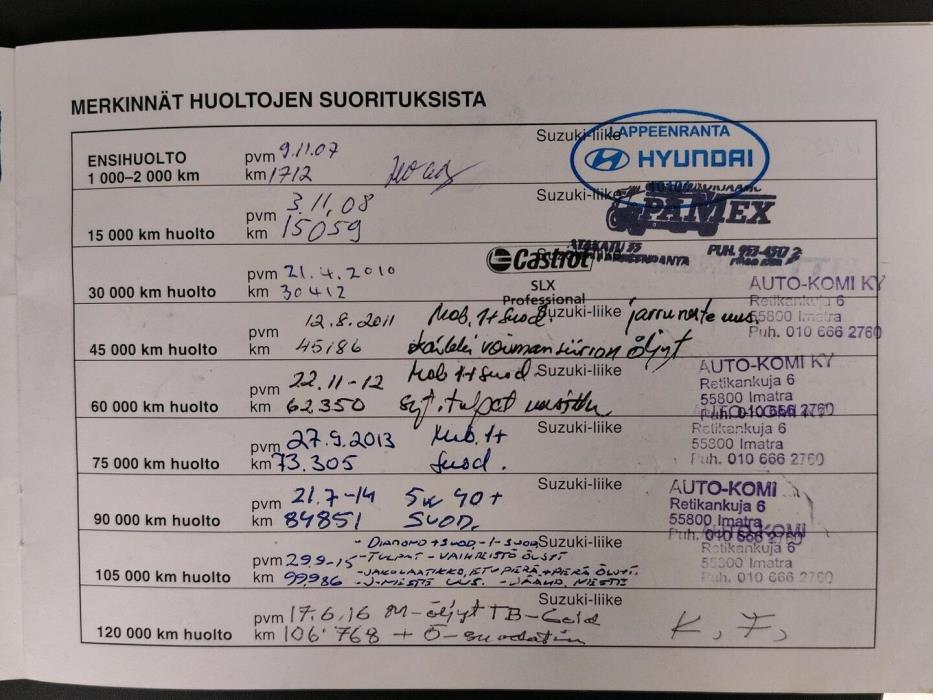 MERKINNÄT HUOLTOJEN SUORITUKSISTA
ENSIHUOLTO
1 000–2 000 km
pvm 9.11.07
km 1712
Suzuki-liike
LAPPEENRANTA
HYUNDAI
15 000 km huolto
pvm 3.11.08
km 15059
Suzuki-liike
PAMEX
30 000 km huolto
pvm 21.4.2010
km 30412
Castrol
SLX
Professional
PUH. 953-450
AUTO-KOMI KY
Retikankuja 6
55800 Imatra
Puh. 010 666 2760
45 000 km huolto
pvm 12.8.2011
km 45186
Suzuki-liike
Mob. 1+Suod. jarruneste uus.
kaikki voimansiirron öljyt
AUTO-KOMI KY
Retikankuja 6
55800 Imatra
Puh. 010 666 2760
60 000 km huolto
pvm 22.11-12
km 62350
Suzuki-liike
Mob 1+Suod.
syt.tulpat
Retikankuja 6
55800 Imatra
Puh. 010 666 2760
75 000 km huolto
pvm 27.9.2013
km 73.305
Suzuki-liike
Mob. 1+
Suod.
90 000 km huolto
pvm 21.7-14
km 84851
Suzuki-liike
5w40+
SUOD.
AUTO-KOMI
Retikankuja 6
55800 Imatra
Puh. 010 666 2760
AUTO-KOMI
Retikankuja 6
55800 Imatra
Puh. 010 666 2760
105 000 km huolto
pvm 29.9-15
km 99986
Suzuki-liike
- DIAMOND +SUOD, -I-SUOD
- TULPAT - VAIHTEISTO ÖLJYT
- JAKOLAATIKKO, ETUPERÄ, +PERÄ ÖLJYT.
- J-NESTE UUS. - JÄÄHD. NESTE
120 000 km huolto
pvm 17.6.16
km 106'768
Suzuki-liike
M-öljyt TB-Gold
+ Ö-suodatin
K, F,